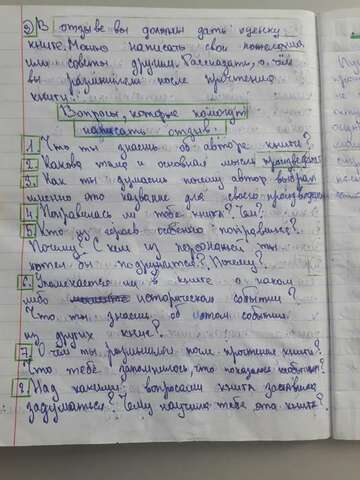 2) В отзыве вы должны дать оценку
книге. Можно написать свои пожелания
или советы другим. Рассказать, о чём
вы размышляли после прочтения
книги.
Вопросы, которые помогут
написать отзыв.
1. Что ты знаешь об авторе книги?
2. Какова тема и основная мысль произведения
3. Как ты думаешь почему автор выбрал
именно это название для своего произведения
4. Понравилась ли тебе книга? Чем?
5. Кто из героев особенно понравился?
Почему? С кем из персонажей ты
хотел бы подружиться? Почему?
6. Упоминается ли в книге о каком
либо историческом событии?
Что ты знаешь об этом событии
из других книг?
7. О чём ты размышлял после прочтения книги?
Что тебе запомнилось, что показалось необычным?
8. Над какими вопросами книга заставила
задуматься? Чему научила тебя эта книга?